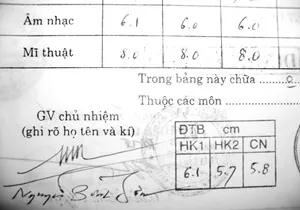 Âm nhạc 6.1 6.0 6.0
Mĩ thuật 8.0 8.0 8.0
Trong bảng này chữa
Thuộc các môn
GV chủ nhiệm
(ghi rõ họ tên và kí)
ĐTB cm
HK1 HK2 CN
6.1 5.7 5.8
Nguyễn